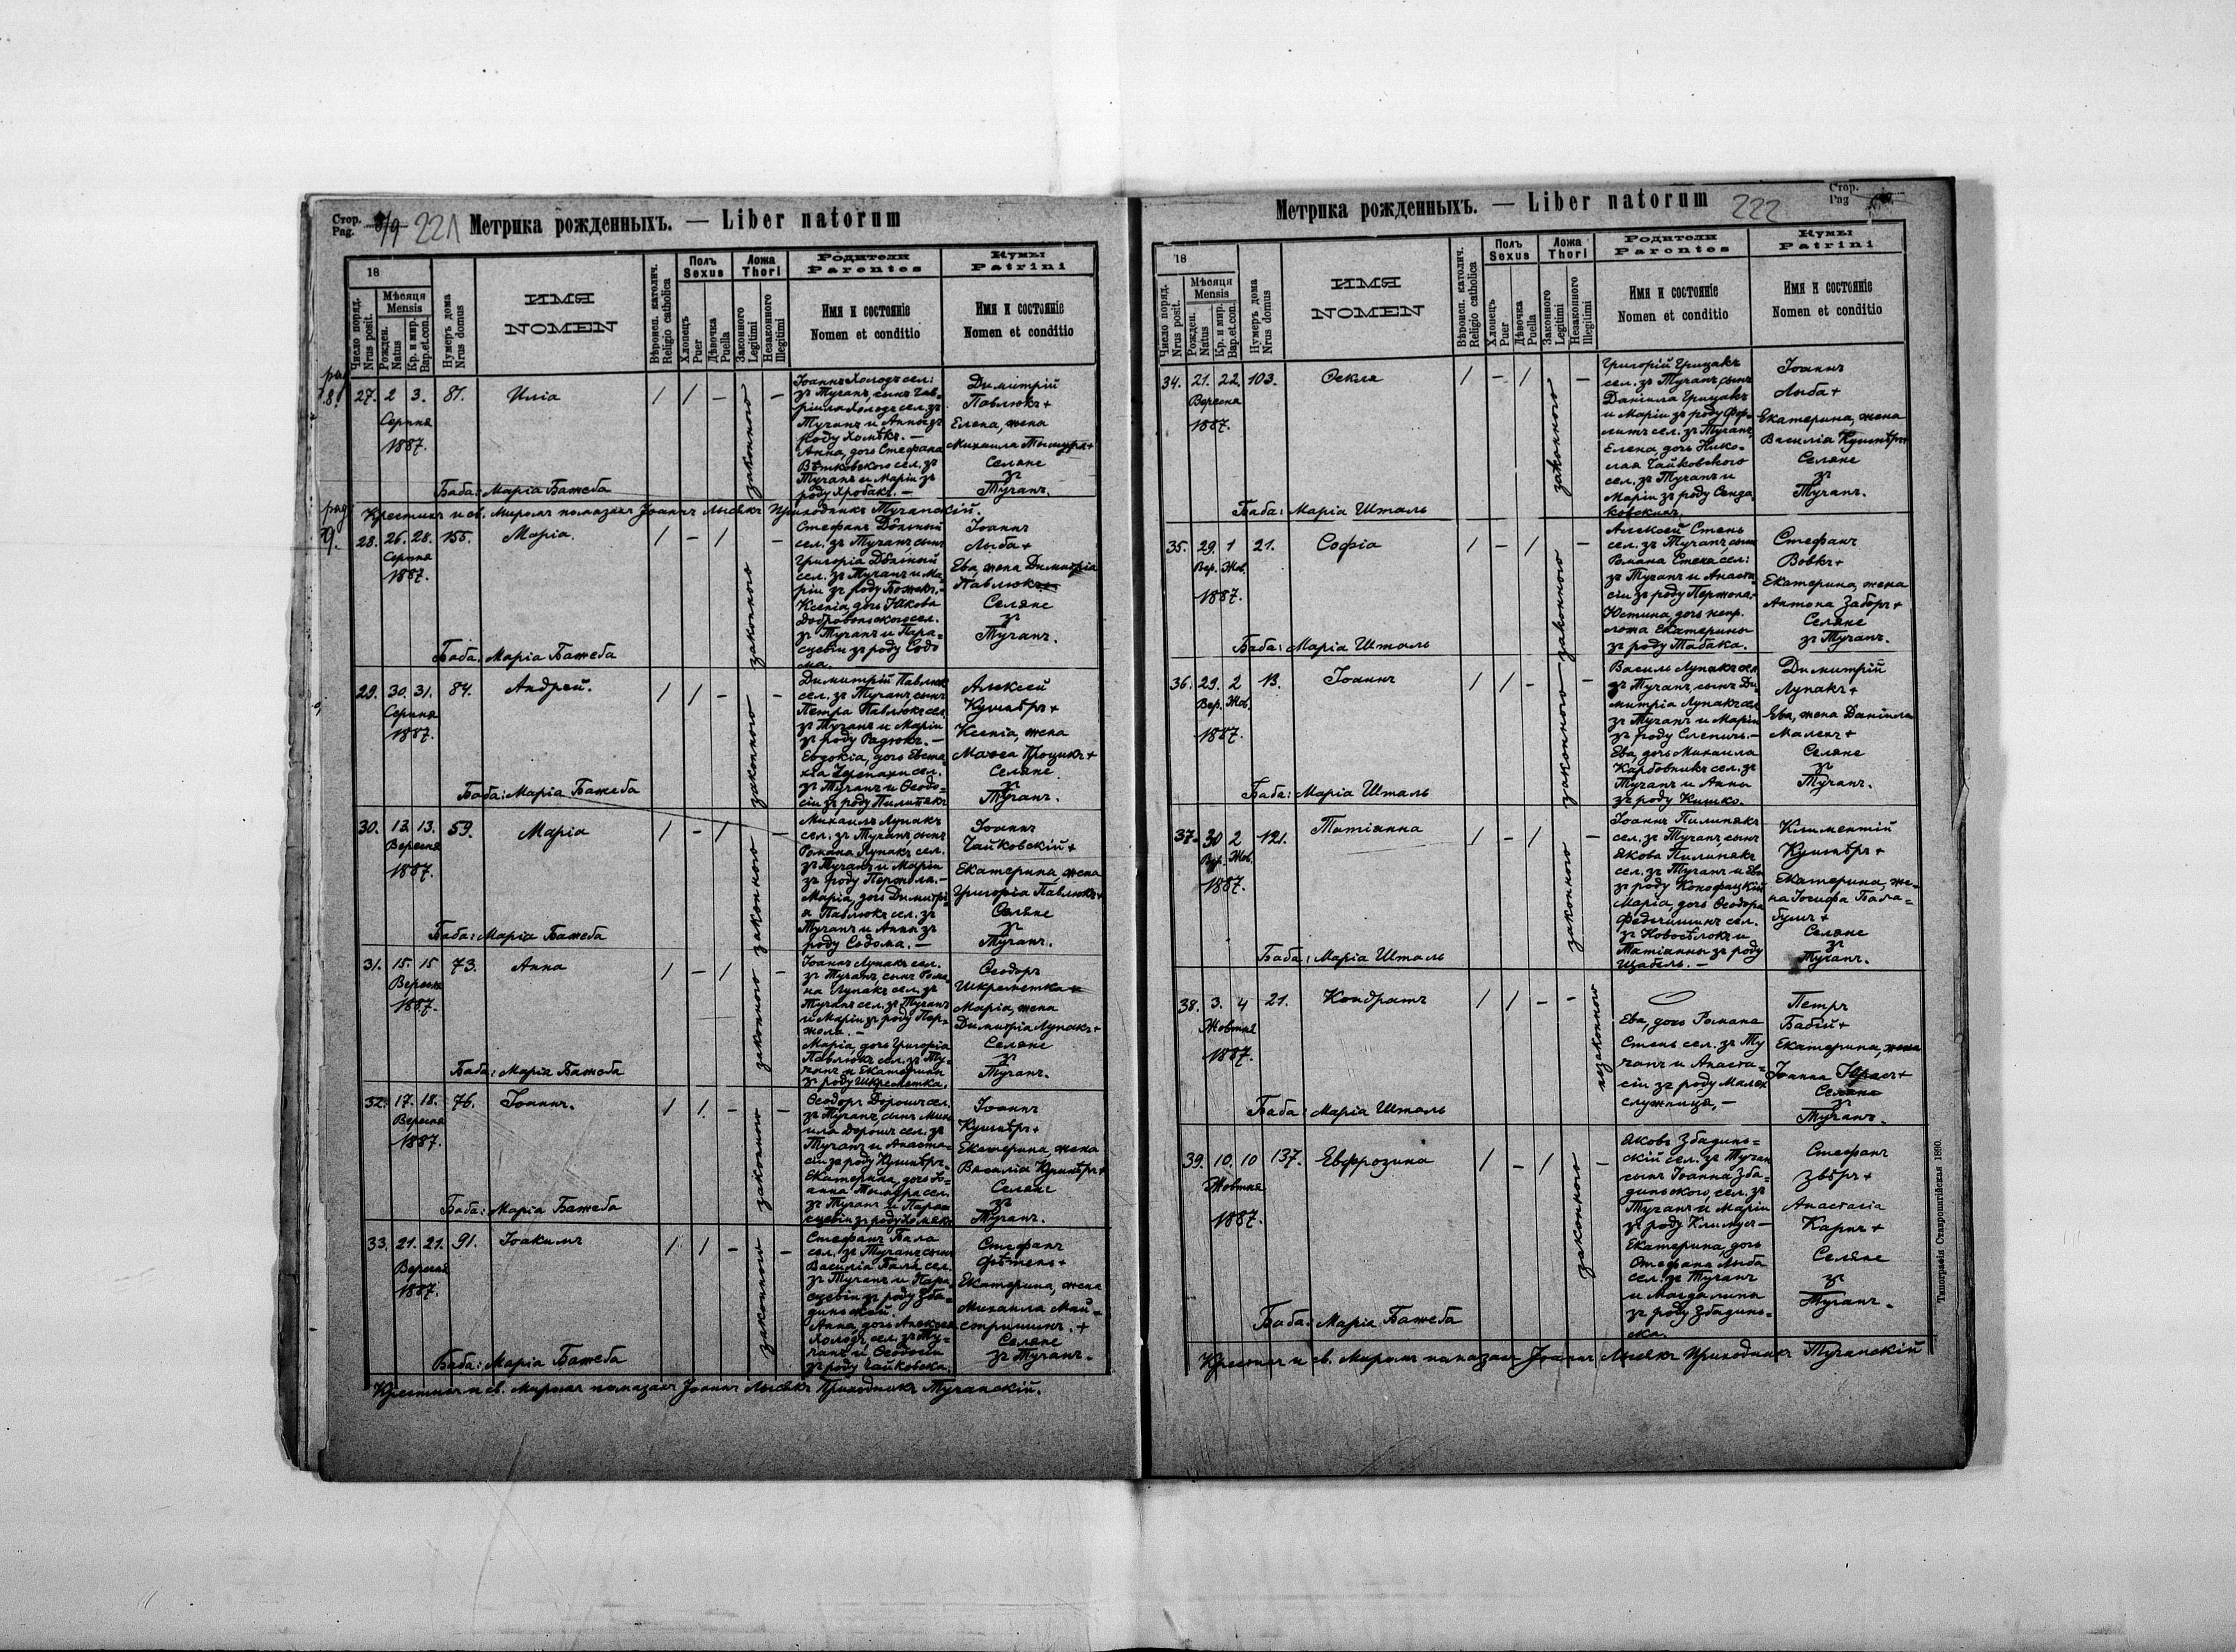 Стор.
Pag.
221 Метрика рожденныхъ. — Liber natorum
18
Число поряд.
Nrus posit.
Мѣсяця
Mensis
Рожден.
Natus
Кр. и мир.
Bap. et con.
Нумеръ дома
Nrus domus
ИМЯ
NOMEN
Вѣроисп. католич.
Religio catholica
Полъ
Sexus
Хлопецъ
Puer
Дѣвочка
Puella
Ложа
Thori
Законного
Legitimi
Незаконного
Illegitimi
Родители
Parentes
Имя и состояніе
Nomen et conditio
Кумы
Patrini
Имя и состояніе
Nomen et conditio
27. 2 3. 81. Илія / / — —
Серпня
1887.
законного
Іоаннъ Холодъ сел:
зъ Тучапъ, сынъ Гав-
ріила Холодъ сел. зъ
Тучапъ и Анны зъ
роду Хомѣкъ. —
Анна, дочь Стефана
Вѣтковского сел. зъ
Тучапъ и Маріи зъ
роду Хробакъ. —
Димитрій
Павлюкъ +
Елена, жена
Михаила
Селяне
зъ
Тучапъ.
Баба: Марія Бажеба
Крестилъ и св. Миромъ помазалъ Іоаннъ Лысякъ Приходникъ Тучапскій.
28. 26. 28. 155. Марія. / — / —
Серпня
1887.
законного
Стефанъ
сел. зъ Тучапъ, сынъ
Григорія
сел. зъ Тучапъ и Ма-
ріи зъ роду Божакъ.-
Ксенія, дочь Якова
Добровольского сел.
зъ Тучапъ и Пара-
скевіи зъ роду Содо
ма.
Іоаннъ
Лыба +
Ева, жена Димитрія
Павлюкъ
Селяне
зъ
Тучапъ.
Баба: Марія Бажеба
29. 30. 31. 84. Андрей. / / — —
Серпня
1887.
законного
Димитрій Павлюкъ
сел. зъ Тучапъ, сынъ
Петра Павлюкъ сел.
зъ Тучапъ и Маріи
зъ роду Радюкъ. —
Евдокія, дочь Евста-
хія Черепахи сел.
зъ Тучапъ и Ѳеодо-
сіи зъ роду Пилипякъ
Алексей
Кушнѣръ +
Ксенія, жена
Матѳея Процикъ +
Селяне
зъ
Тучапъ.
Баба: Марія Бажеба
30. 13. 13. 59. Марія / — / —
Вересня
1887.
законного
Михаилъ Лупакъ
сел. зъ Тучапъ, сынъ
Романа Лупакъ сел.
зъ Тучапъ и Маріи
зъ роду Пержола. —
Марія, дочь Димитрі-
я Павлюкъ сел. зъ
Тучапъ и Анны зъ
роду Содома. —
Іоаннъ
Чайковскій +
Екатерина, жена
Григорія Павлюкъ +
Селяне
зъ
Тучапъ.
Баба: Марія Бажеба
31. 15. 15 73. Анна / — / —
Вересня
1887.
законного
Іоаннъ Лупакъ сел.
зъ Тучапъ, сынъ Рома-
на Лупакъ сел. зъ
Тучапъ сел. зъ Тучапъ
и Маріи зъ роду Пер-
жола. —
Марія, дочь Григорія
Павлюкъ сел. зъ Ту-
чапъ и Екатерины
зъ роду Шкреметка.
Ѳеодоръ
Шкреметка
Марія, жена
Димитрія Лупакъ +
Селяне
зъ
Тучапъ.
Баба: Марія Бажеба
32. 17. 18. 76. Іоаннъ. / / — —
Вересня
1887.
законного
Ѳеодоръ Дорошъ сел.
зъ Тучапъ, сынъ Миха
ила Дорошъ сел. зъ
Тучапъ и Анаста-
сіи зъ роду Кушнѣръ.
Екатерина, дочь Іо-
анна
зъ Тучапъ и Пара
скевіи зъ роду Хомякъ
Іоаннъ
Кушнѣръ +
Екатерина, жена
Василія Кушнѣръ +
Селяне
зъ
Тучапъ.
Баба: Марія Бажеба
33. 21. 21. 91. Іоакимъ / / — —
Вересня
1887.
законного
Стефанъ Бала
сел. зъ Тучапъ сынъ
Василія Баля сел.
зъ Тучапъ и Пара
скевіи зъ роду Зба-
диньской.
Анна, дочь Алексея
Холодъ, сел. зъ Ту-
чапъ и Ѳеодосіи
зъ роду Чайковска.
Стефанъ
Фѣтель +
Екатерина, жена
Михаила Май-
стришинъ. +
Селяне
зъ Тучапъ.
Баба: Марія Бажеба
Крестилъ и св. Миромъ помазалъ Іоаннъ Лысякъ Приходникъ Тучапскій.
Метрика рожденныхъ. — Liber natorum 222
Стор.
Pag
18
Число поряд.
Nrus posit.
Мѣсяця
Mensis
Рожден.
Natus
Кр. и мир.
Bap. et con.
Нумеръ дома
Nrus domus
ИМЯ
NOMEN
Вѣроисп. католич.
Religio catholica
Полъ
Sexus
Хлопецъ
Puer
Дѣвочка
Puella
Ложа
Thori
Законного
Legitimi
Незаконного
Illegitimi
Родители
Parentes
Имя и состояніе
Nomen et conditio
Кумы
Patrini
Имя и состояніе
Nomen et conditio
34. 21. 22. 103. Ѳекля / — / —
Вересня
1887.
законного
Григорій Грицакъ
сел. зъ Тучапъ, сынъ
Даніила Грицакъ
и Маріи зъ роду
сел. зъ Тучапъ,
Елена, дочь Нико-
лая Чайковского
сел. зъ Тучапъ и
Маріи зъ роду Сенда
ковскихъ.
Іоаннъ
Лыба +
Екатерина, жена
Василія Кушнѣръ
Селяне
зъ
Тучапъ.
Баба: Марія Шталь
35. 29. 1 21. Софія / — / —
Вер. Жов.
1887.
законного
Алексей Стень
сел. зъ Тучапъ, сынъ
Романа Стека сел:
зъ Тучапъ и Анаста
сіи зъ роду Пержола.
Юстина, дочь непр.
ложа Екатерины
зъ роду Табака.
Стефанъ
Вовкъ +
Екатерина, жена
Антона Заборъ +
Селяне
зъ Тучапъ.
Баба: Марія Шталь
36. 29. 2 13. Іоаннъ / / — —
Вер. Жов.
1887.
законного
Василь Лупакъ сел
зъ Тучапъ, сынъ Ди-
митрія Лупакъ сел
зъ Тучапъ и Маріи
зъ роду Слепичъ. —
Ева, дочь Михаила
Карбовникъ сел. зъ
Тучапъ и Анны
зъ роду Кишко.
Димитрій
Лупакъ +
Ева, жена Даніила
Малекъ +
Селяне
зъ
Тучапъ.
Баба: Марія Шталь
37. 30 2 121. Татіанна / — / —
Вер. Жов.
1887.
законного
Іоаннъ Пилипякъ
сел. зъ Тучапъ, сынъ
Якова Пилипякъ
сел. зъ Тучапъ и Евы
зъ роду Конофацкій
Марія, дочь Ѳеодора
Федечишинъ сел.
зъ Новосѣлокъ и
Татіанны зъ роду
Щабель. —
Климентій
Кушнѣръ +
Екатерина, же-
на Іосифа Бала-
бухъ +
Селяне
зъ
Тучапъ.
Баба: Марія Шталь
38. 3. 4 21. Кондратъ / / — —
Жовтня
1887.
незаконного
Ева, дочь Романа
Стень сел. зъ Ту
чапъ и Анаста-
сіи зъ роду Малек
служниця, —
Петръ
Бабій +
Екатерина, жена
Іоанна
Селяне
зъ
Тучапъ.
Баба: Марія Шталь
39. 10. 10 137. Евфрозина / — / —
Жовтня
1887.
законного
Яковъ Збадинь-
скій сел. зъ Тучап
сынъ Іоанна Зба-
диньского, сел. зъ
Тучапъ и Маріи
зъ роду Климусъ —
Екатерина, дочь
Стефана Лыба
сел. зъ Тучапъ
и Магдалины
зъ роду Збадинь-
ска.
Стефанъ
Звѣръ +
Анастасія
Карпъ +
Селяне
зъ
Тучапъ.
Баба: Марія Бажеба
Крестилъ и св. Миромъ помазалъ Іоаннъ Лысякъ Приходникъ Тучапскій
Типографія Ставропигійская 1890.